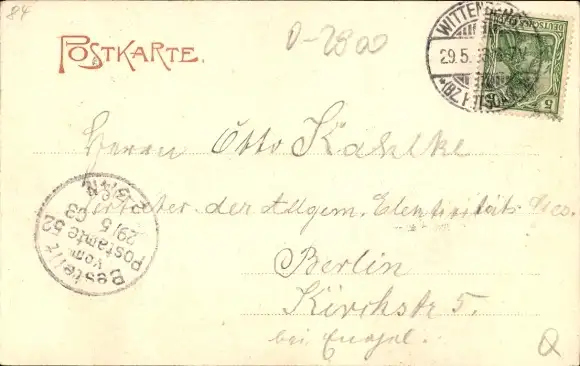 84
POSTKARTE.
0-2800
WITTENBERG
29.5.
*(BZ. HALLE
5
Herrn Otto Kahlke
Vertreter der Allgem. Elentricitäts Ges.
Berlin
Kirchstr 5.
bei
Bestellt
vom
Postamte 52
29/5 03
Q